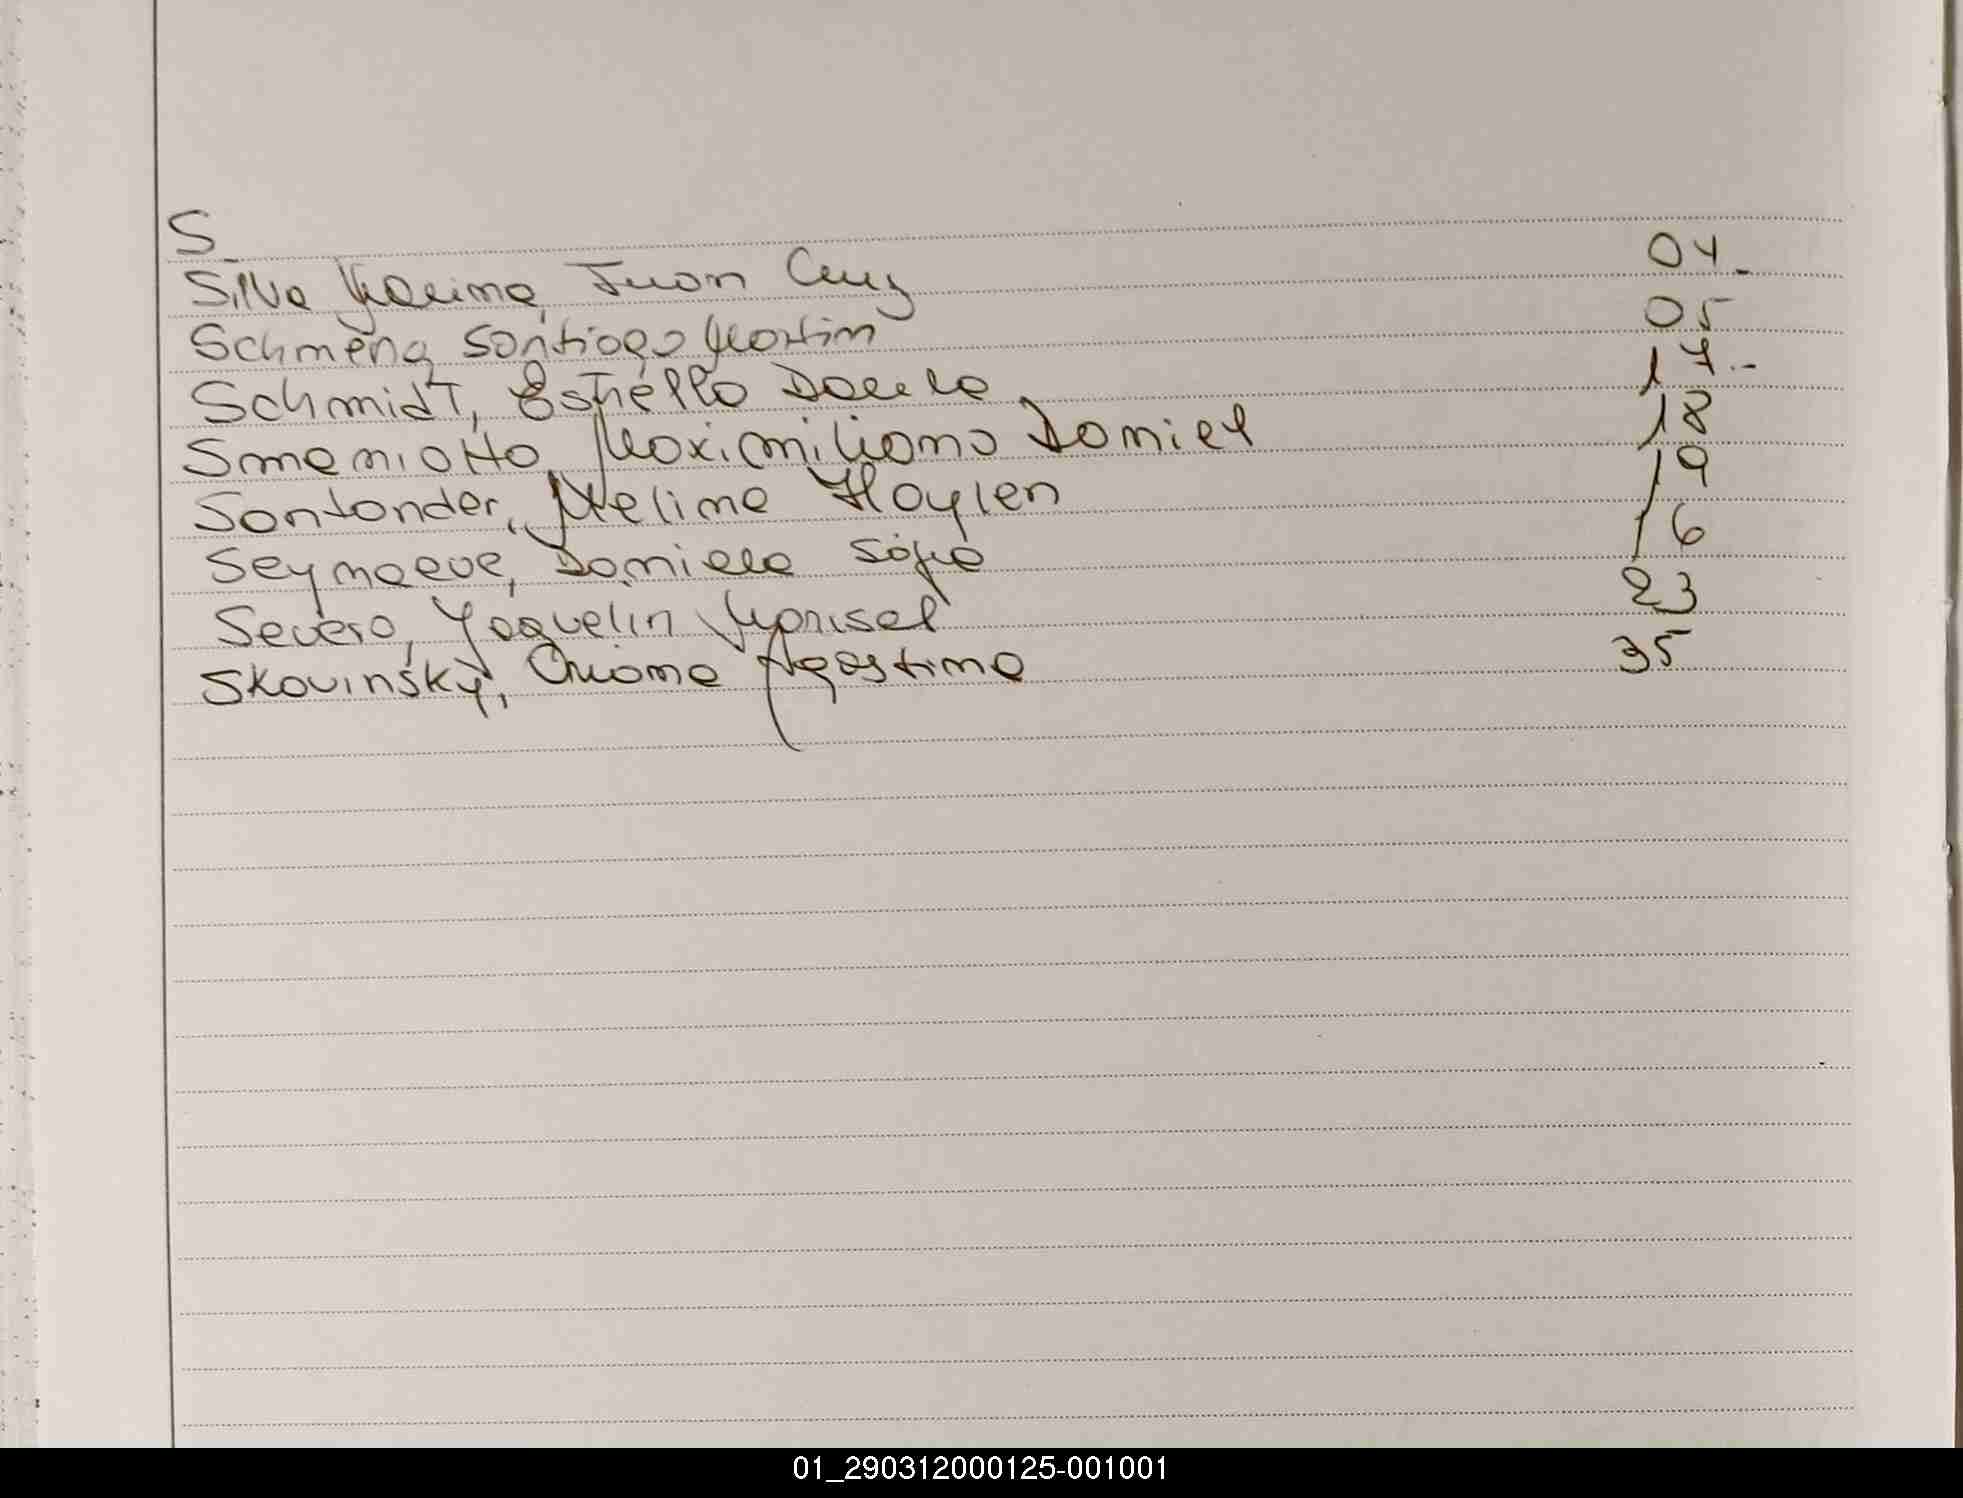 S.
Silva Karina, Juan Cruz 04.
Schmena Santiago Martin 05
Schmidt, Estrella 17.-
Smaniotto, Maximiliano Daniel 18
Santander, Melina Haylen 19
Seynaeve, Daniela Sofia 16
Severo, Yaquelin Marisel 23
Skovinsky, Oriana Agostina 35
01_290312000125-001001